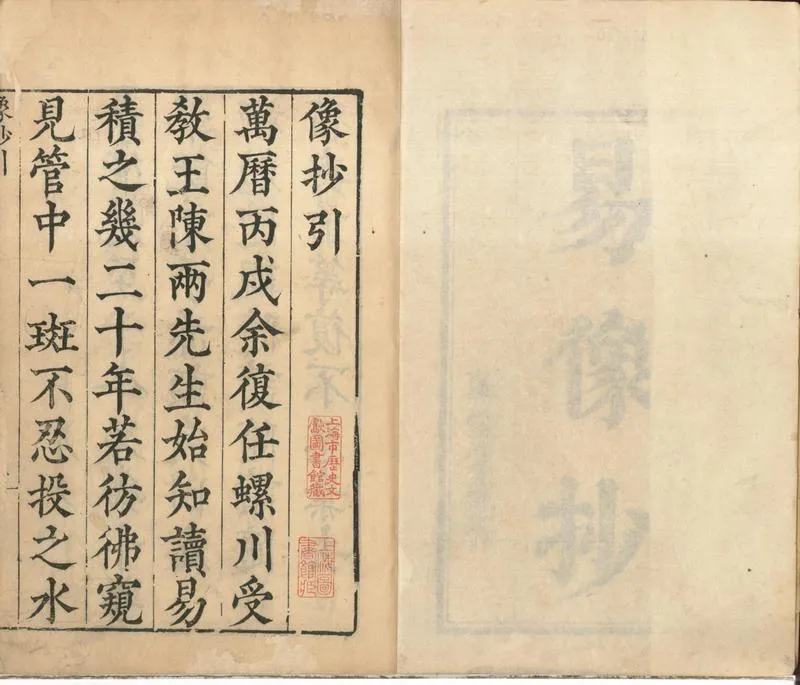 像抄引
萬曆丙戍余復任螺川受
教王陳兩先生始知讀易
積之幾二十年若彷彿窺
見管中一斑不忍投之水
像抄引
上海市歷史文
獻圖書館藏
上海圖
書館藏
易像抄